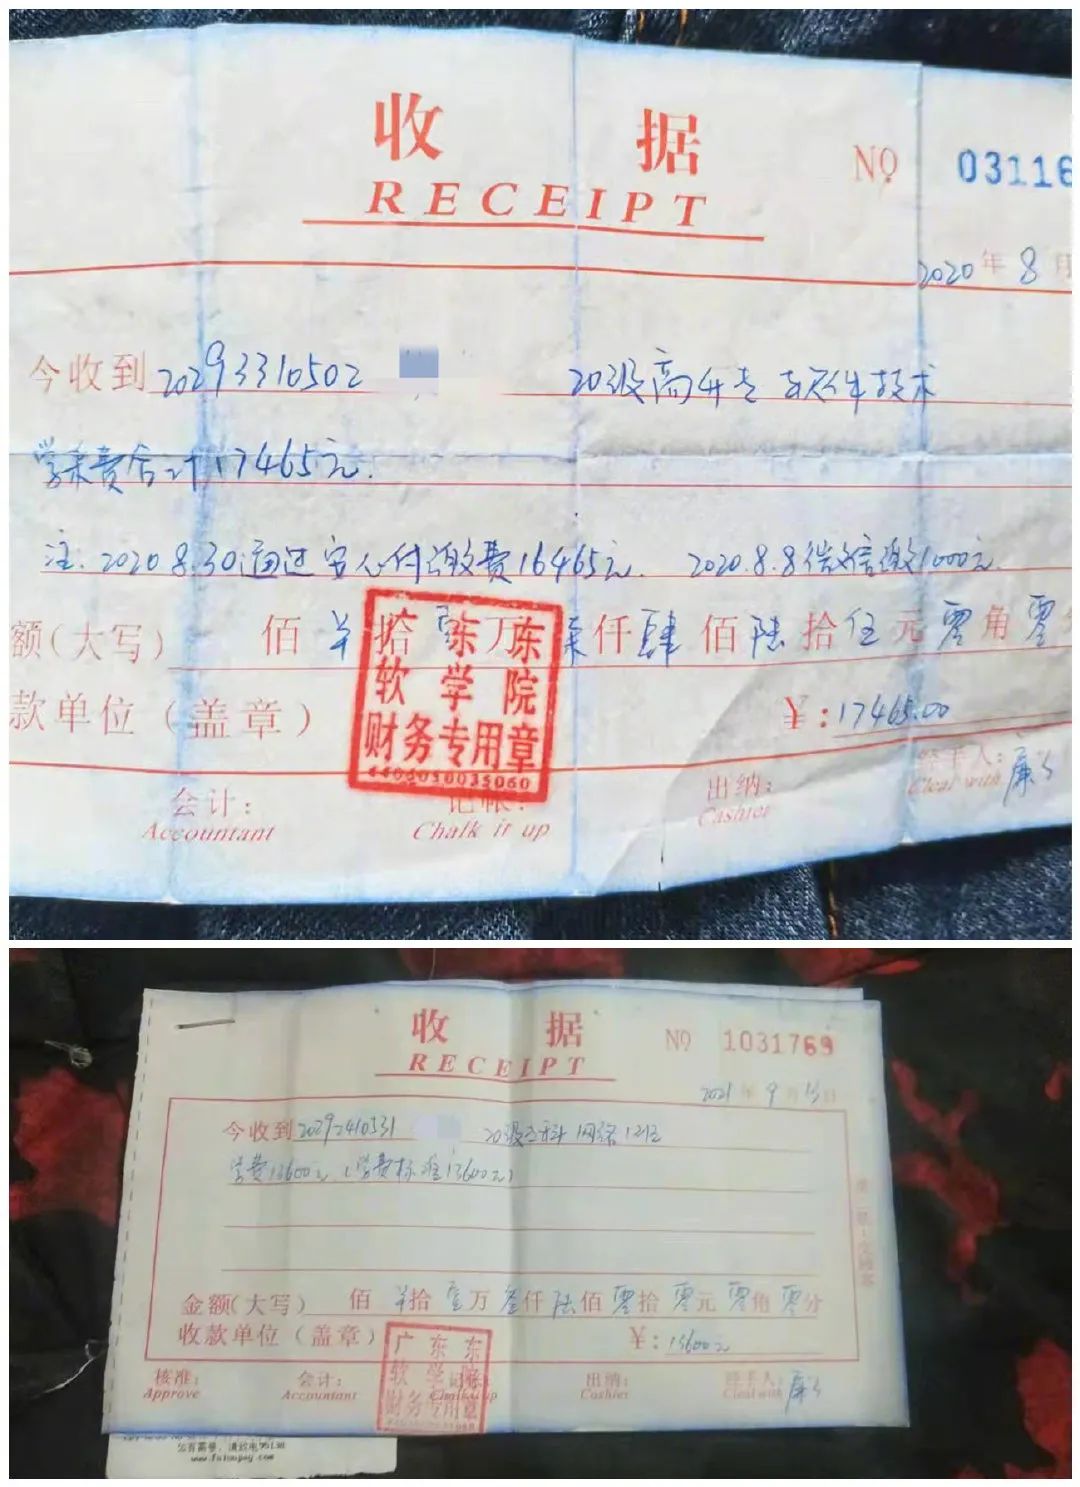 收 据
RECEIPT
№ 03116
2020年8月
今收到 20293310502 20级高升专 软件技术
学杂费合计17465元.
注: 2020.8.30通过安心付缴费16465元. 2020.8.8微信缴1000元.
额(大写) 佰 拾壹万柒仟肆佰陆拾伍元零角零
款单位(盖章) ¥:17465.00
广东东
软学院
财务专用章
4403050035060
会计: 记帐: 出纳: 经手人:
Accountant Chalk it up Cashier Cleal with
收 据
RECEIPT
№ 1031769
2021年9月13日
今收到 20292410531 20级专科 网络121
学费13600元(学费标准13600元)
金额(大写) 佰 拾壹万叁仟陆佰零拾零元零角零分
收款单位(盖章) ¥:13600元
广东东
软学院
财务专用章
核准: 会计: 记帐: 出纳: 经手人:
Approve Accountant Chalk it up Cashier Cleal with
如有需要，请致电95138